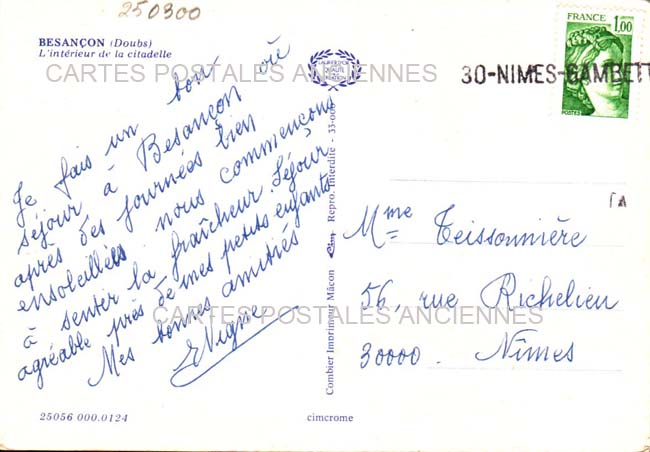 250300
BESANÇON (Doubs)
L'intérieur de la citadelle
CARTES POSTALES ANCIENNES
FRANCE
1,00
POSTES
30-NIMES-GAMBETT
Je fais un bon
séjour à Besançon où
après des journées bien
ensoleillées nous commençons
à sentir la fraîcheur. Séjour
agréable près de mes petits enfants
Mes bonnes amitiés
EVigne
Mme Teissonnière
56, rue Richelieu
30000. Nîmes
CARTES POSTALES ANCIENNES
Combier Imprimeur Mâcon Cim Repro. Interdite - 33-003
25056 000.0124
cimcrome